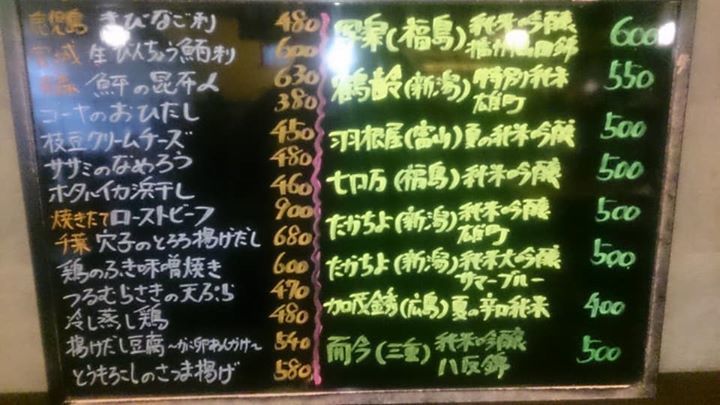 鹿児島 きびなご刺 480
宮城 生びんちょう鮪刺 600
鮃の昆布〆 630
ゴーヤのおひたし 380
枝豆クリームチーズ 450
ササミのなめろう 480
ホタルイカ浜干し 460
焼きたてローストビーフ 900
千葉 穴子のとろろ揚げだし 680
鶏のふき味噌焼き 600
つるむらさきの天ぷら 470
冷し蒸し鶏 480
揚げだし豆腐〜かに卵あんかけ〜 540
とうもろこしのさつま揚げ 580
(福島) 純米吟醸 600
播州山田錦
鶴齢(新潟) 特別純米 550
雄町
羽根屋(富山) 夏の純米吟醸 500
七ロ万(福島) 純米吟醸 500
たかちよ(新潟) 純米吟醸 500
雄町
たかちよ(新潟) 純米大吟醸 500
サマーブルー
加茂金秀(広島) 夏の辛口純米 400
而今(三重) 純米吟醸 500
八反錦